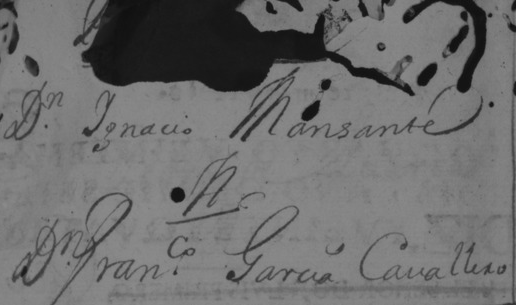 Dn Ignacio Mansante
N
Dn Franco Garcia Cavallero